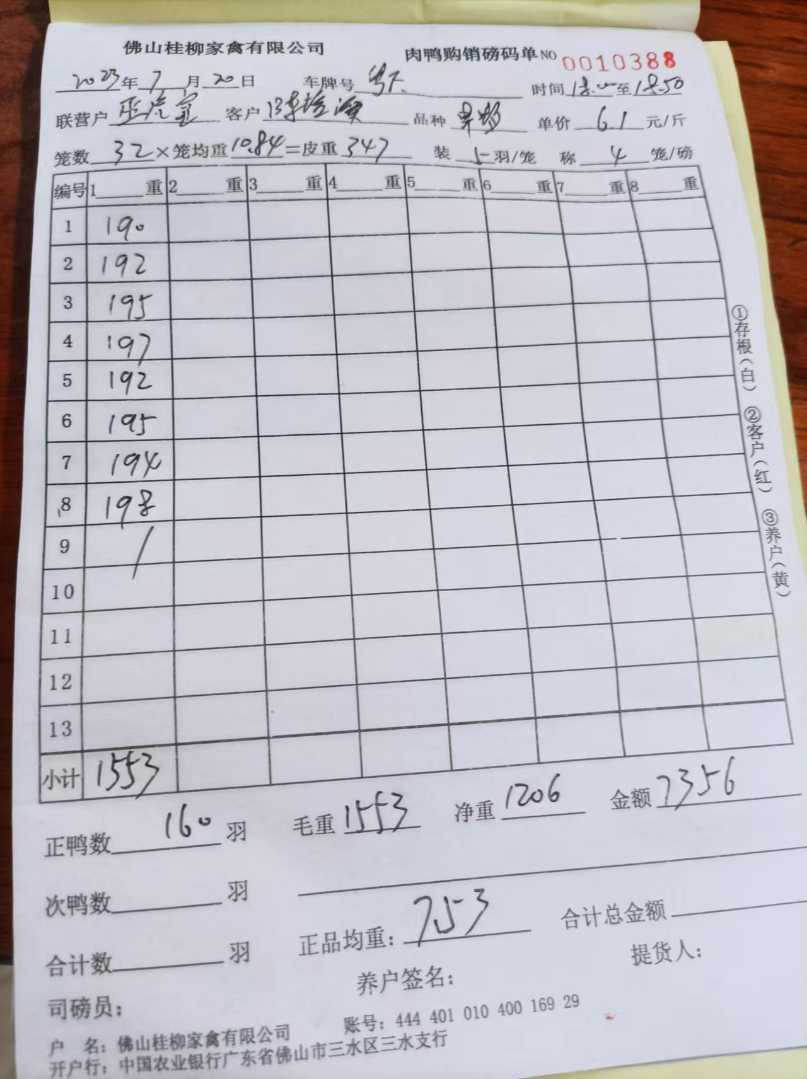 佛山桂柳家禽有限公司 肉鸭购销磅码单 NO 0010388
2023年7月20日 车牌号 时间 18:00至18:50
联营户 客户 品种 单价 6.1 元/斤
笼数 32×笼均重10.84=皮重347 装 5 羽/笼 称 4 笼/磅
编号 1 重 2 重 3 重 4 重 5 重 6 重 7 重 8 重
1 190
2 192
3 195
4 197
5 192
6 195
7 194
8 198
9 /
10
11
12
13
小计 1553
正鸭数 160 羽 毛重 1553 净重 1206 金额 7356
次鸭数 羽
合计数 羽 正品均重: 753 合计总金额
养户签名: 提货人:
司磅员:
户 名: 佛山桂柳家禽有限公司 账号: 444 401 010 400 169 29
开户行: 中国农业银行广东省佛山市三水区三水支行
①存根(白) ②客户(红) ③养户(黄)